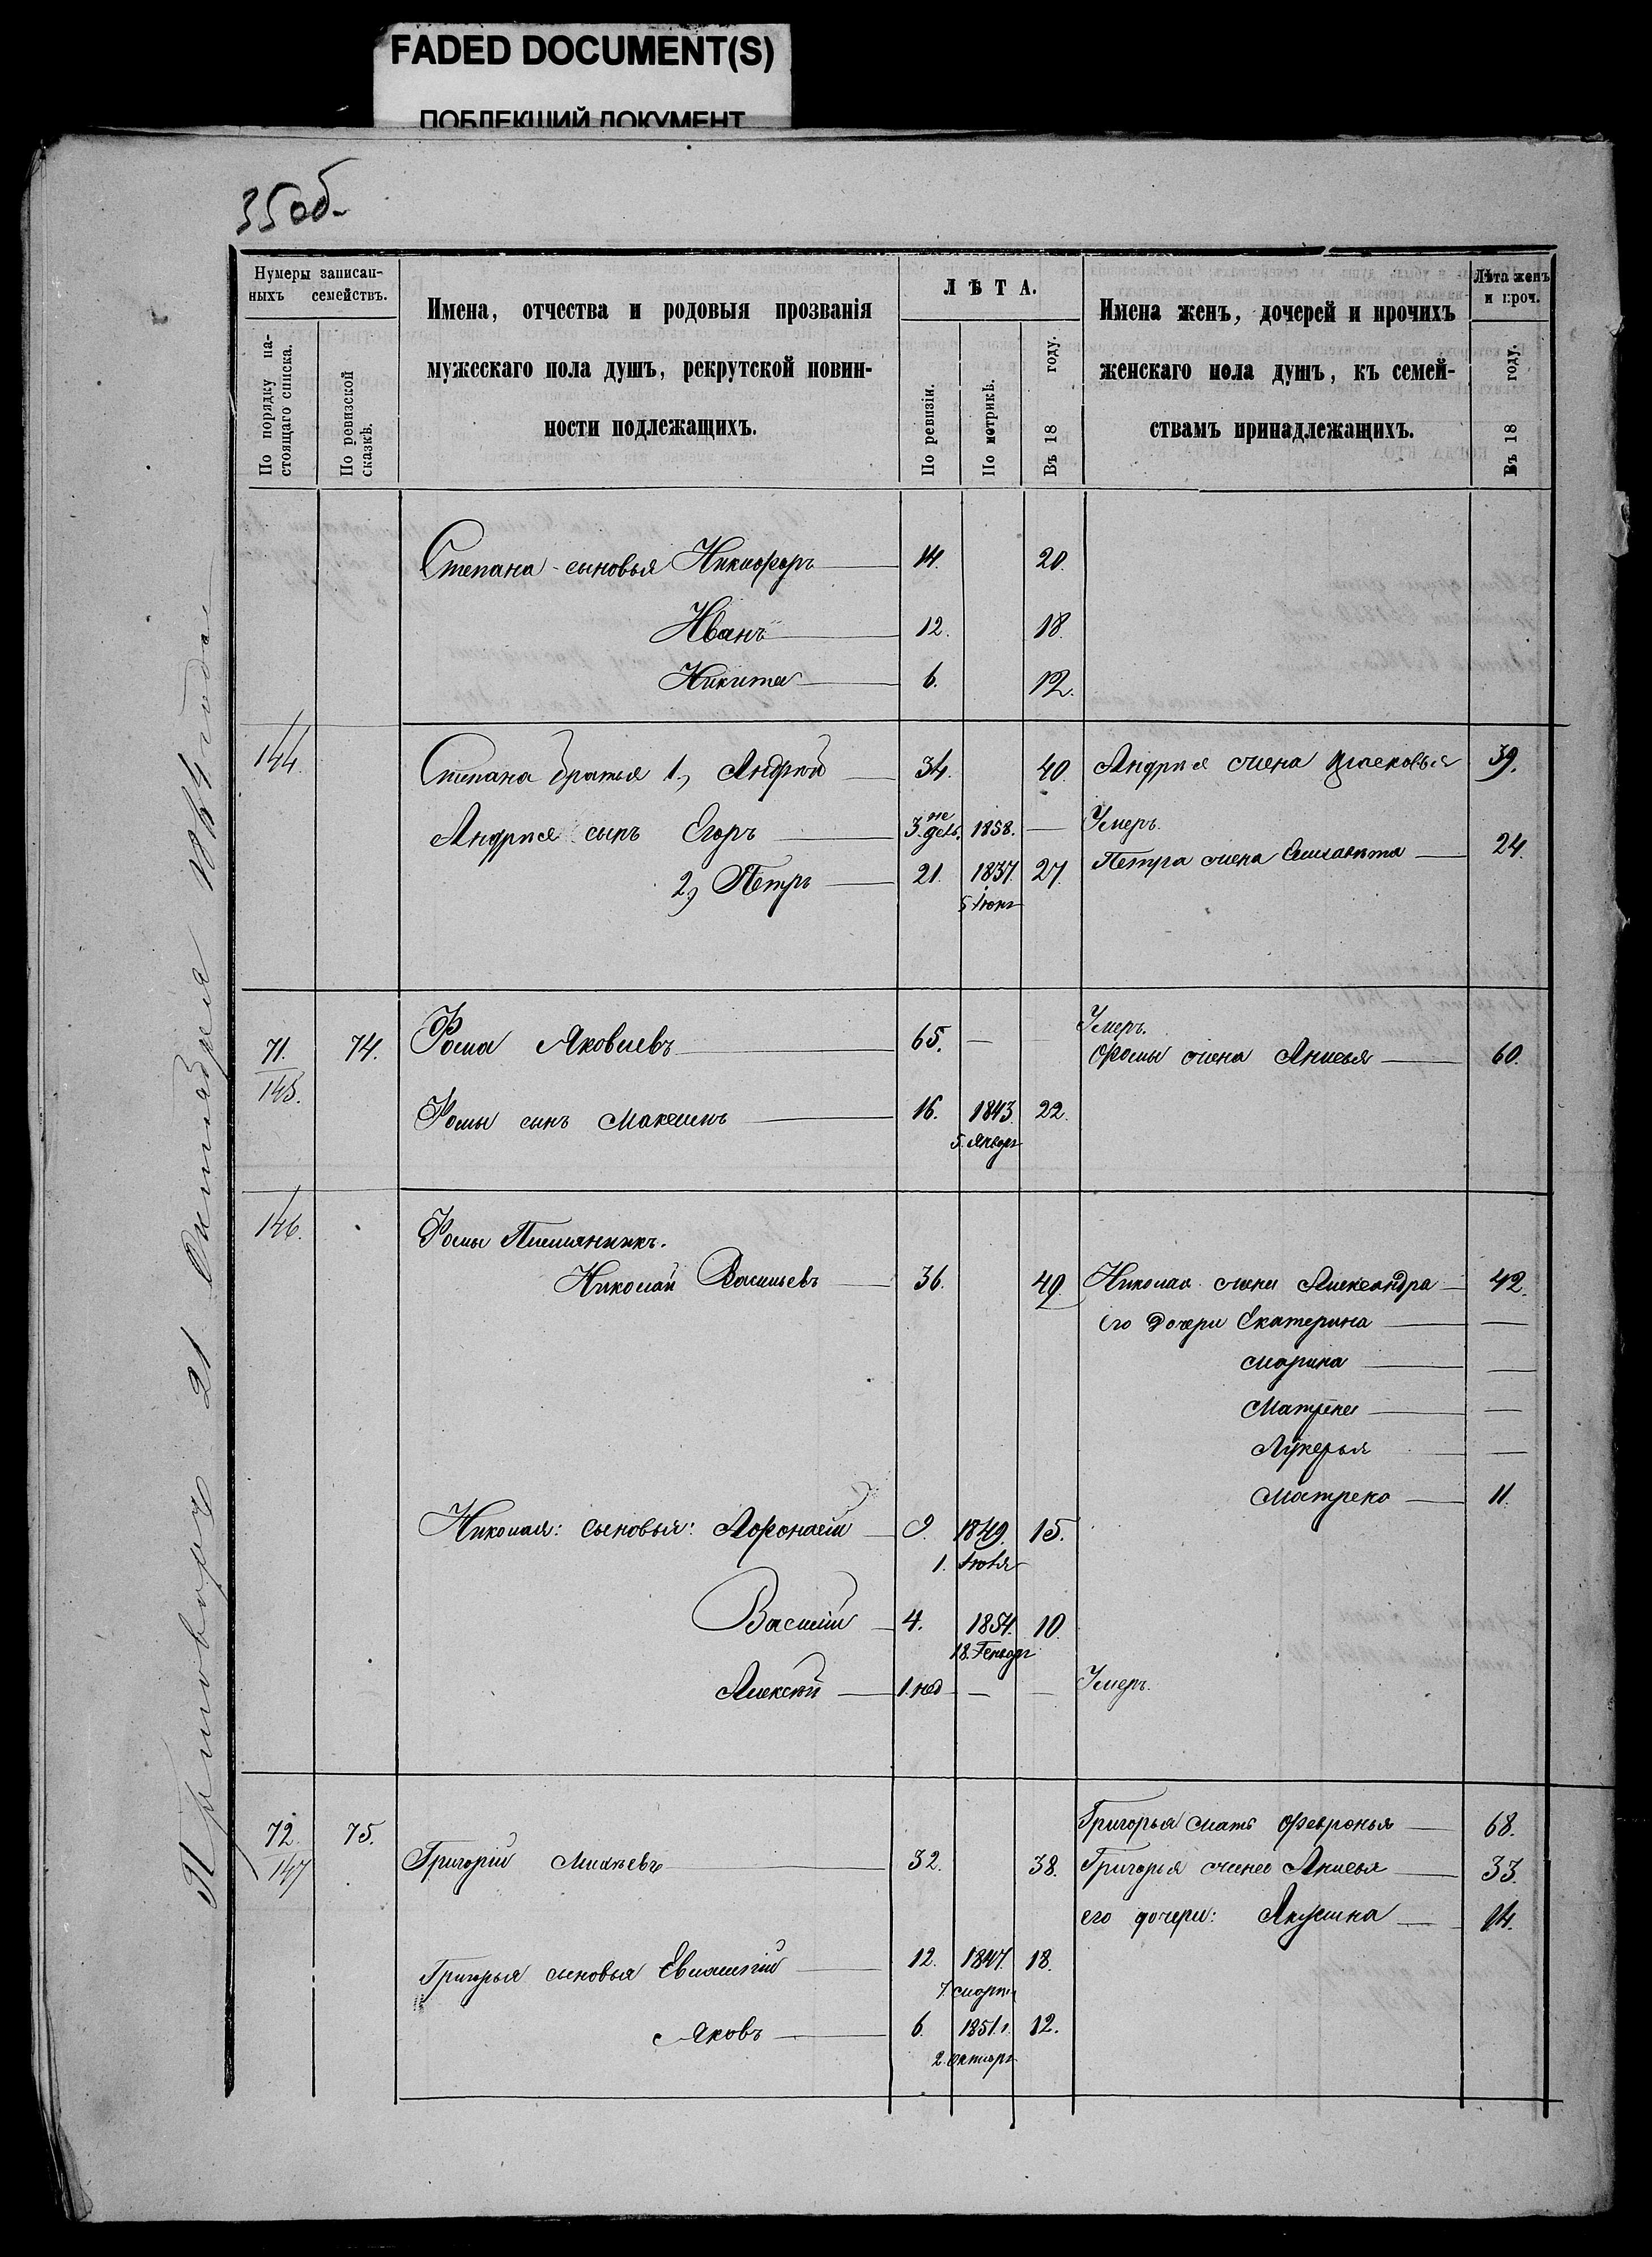 FADED DOCUMENT(S)
ПОБЛЕКШИЙ ДОКУМЕНТ
35 об.
Нумеры записан-
ныхъ семействъ.
По порядку на-
стоящаго списка.
По ревизской
сказкѣ.
Имена, отчества и родовыя прозванія
мужескаго пола душъ, рекрутской повин-
ности подлежащихъ.
ЛѢТА.
По ревизіи.
По метрикѣ.
Въ 18 году.
Имена женъ, дочерей и прочихъ
женскаго пола душъ, къ семей-
ствамъ принадлежащихъ.
Лѣта женъ
и проч.
Въ 18 году.
Степана сыновья Никифоръ 14. 20.
Иванъ 12. 18.
Никита 6. 12.
144. Степана братья 1, Андрѣй 34. 40. Андрѣя жена Прасковья 39.
Андрѣя сынъ Егоръ 3. недѣль. 1858. — Умеръ.
2, Петръ 21. 1837. 27. Петра жена Елисавѣта 24.
5 Іюня
71. 74. Фома Яковлевъ 65. — Умеръ.
Фомы жена Анисья 60.
145.
Фомы сынъ Максимъ 16. 1843. 22.
5. Января
146. Фомы Племянникъ.
Николай Васильевъ 36. 42. Николая жена Александра 42.
его дочери Екатерина —
Марина —
Матрена —
Лукерья —
Матрена 11.
Николая: сыновья: Афонасій 9. 1849. 15.
1. Іюля
Василій 4. 1854. 10.
18. Генваря
Алексѣй 1. нед — — Умеръ.
72. 75. Григорья мать Февронья 68.
147 Григорій 32. 38. Григорья жена Анисья 33.
его дочери: Акулина 14.
Григорья сыновья Евлампій 12. 1847. 18.
7. марта
Яковъ 6. 1851. 12.
2. октября
Приговоръ 21 Октября 1864 года